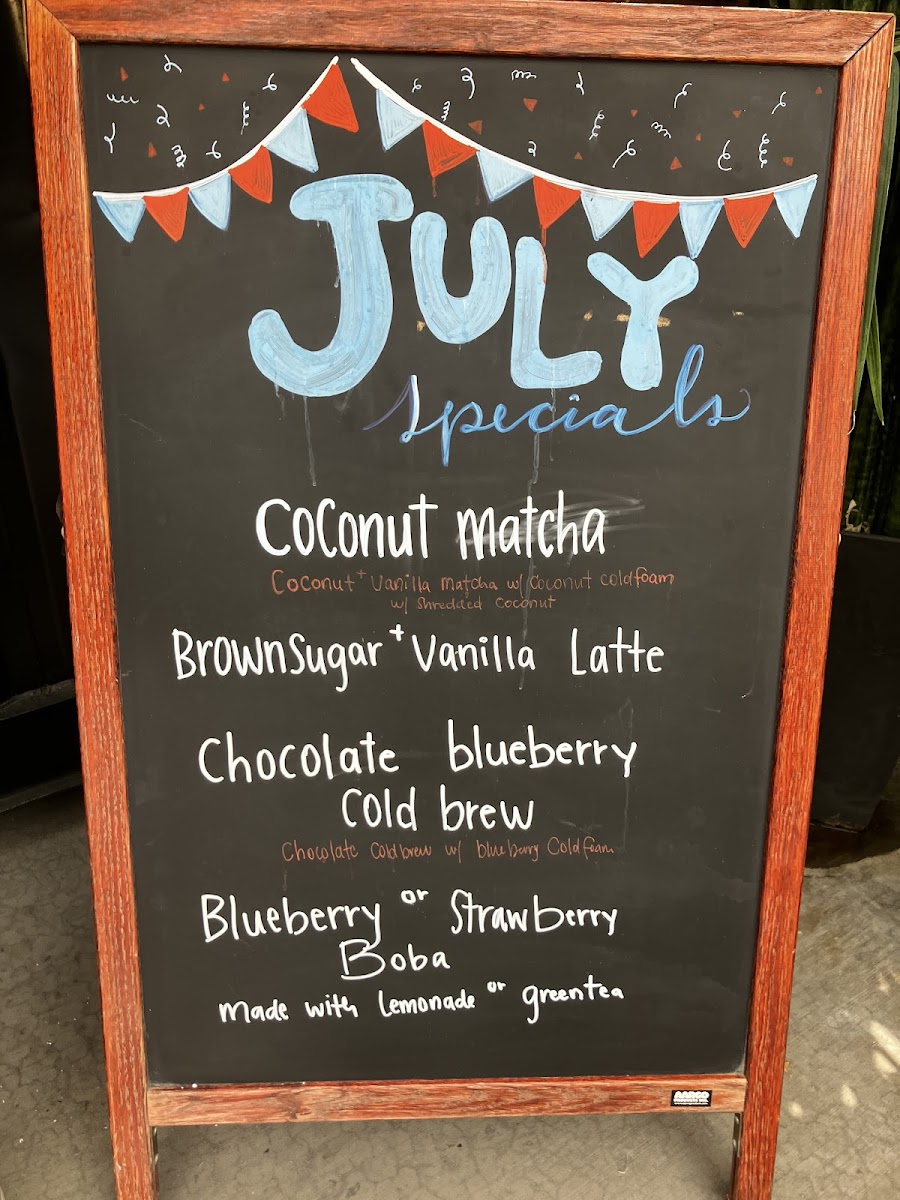 JULY
specials
Coconut matcha
Coconut + Vanilla matcha w/ coconut coldfoam
w/ shredded coconut
Brownsugar + Vanilla Latte
Chocolate blueberry
Cold brew
Chocolate Coldbrew w/ blueberry Coldfoam
Blueberry or Strawberry
Boba
made with Lemonade or greentea
AARCO